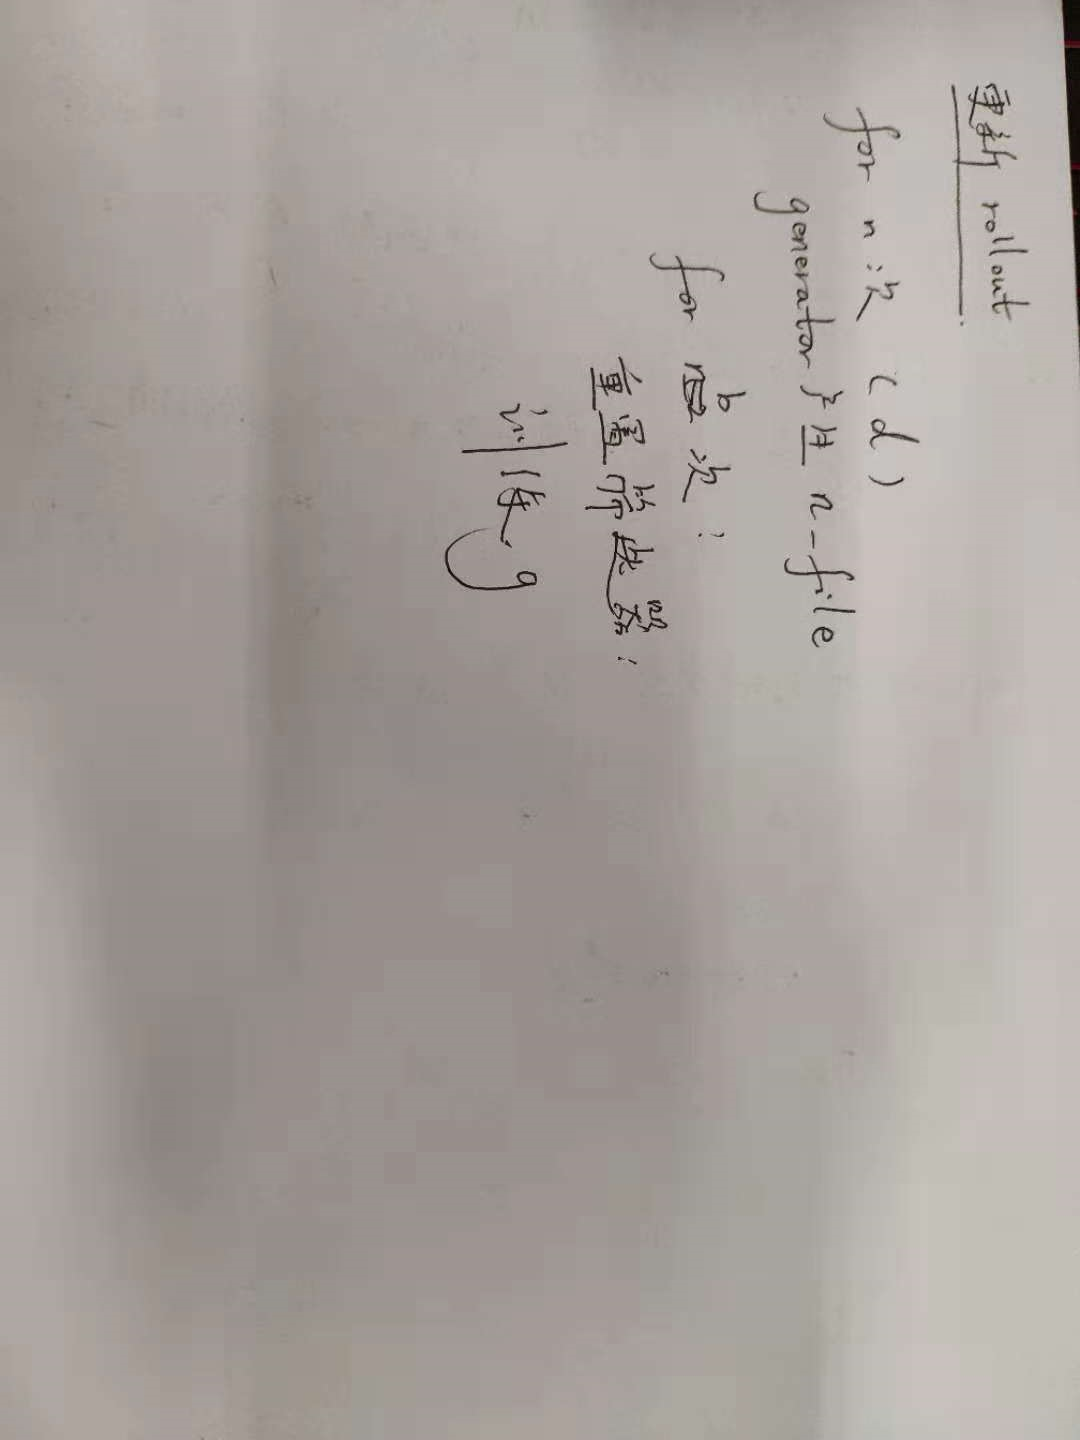 更新 rollout
for n次 (d)
generator产生 n-file
for b次:
重置器:
训练 g